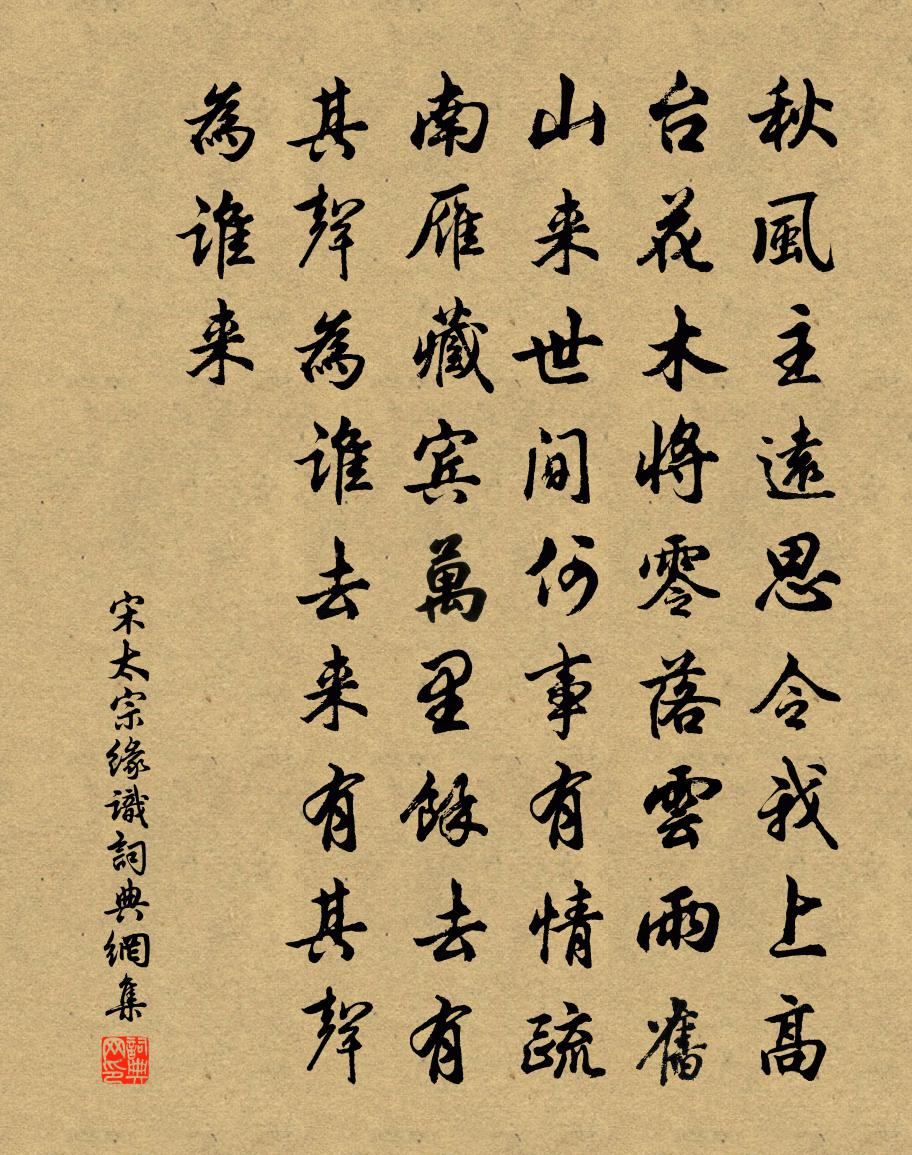 秋風主遠思令我上高
台花木將零落雲雨舊
山来世間何事有情疏
南雁藏宾萬里餘去有
其聲為誰去来有其聲
為誰来
宋太宗緣識詞典網集
詞典网印